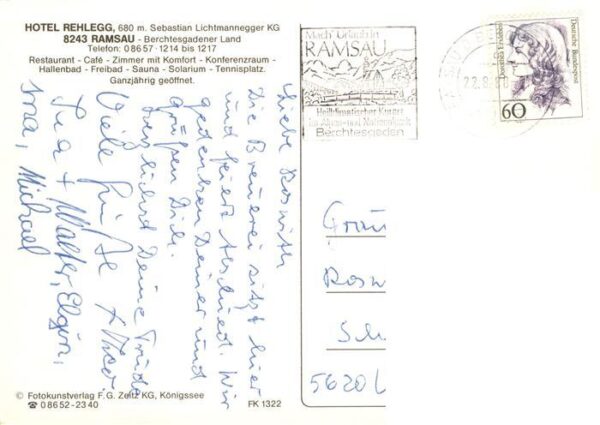 HOTEL REHLEGG, 680 m. Sebastian Lichtmannegger KG
8243 RAMSAU - Berchtesgadener Land
Telefon: 08657-1214 bis 1217
Restaurant - Café - Zimmer mit Komfort - Konferenzraum -
Hallenbad - Freibad - Sauna - Solarium - Tennisplatz.
Ganzjährig geöffnet.
Mach' Urlaub in
RAMSAU
Heilklimatischer Kurort
im Alpen- und Nationalpark
Berchtesgaden
22.8.
Deutsche Bundespost
Dorothea Erxleben
60
Liebe Roswith
Die Brauerei sitzt hier
und feiert Abschied. Wir
gedenken Deiner und
grüßen Dich.
herzlichst Deine Trude
Viele Grüße
+ Walter, Elgin,
Irna, Michael
Rosw
Sch
5620
© Fotokunstverlag F. G. Zeitz KG, Königssee
☎ 08652-2340
FK 1322